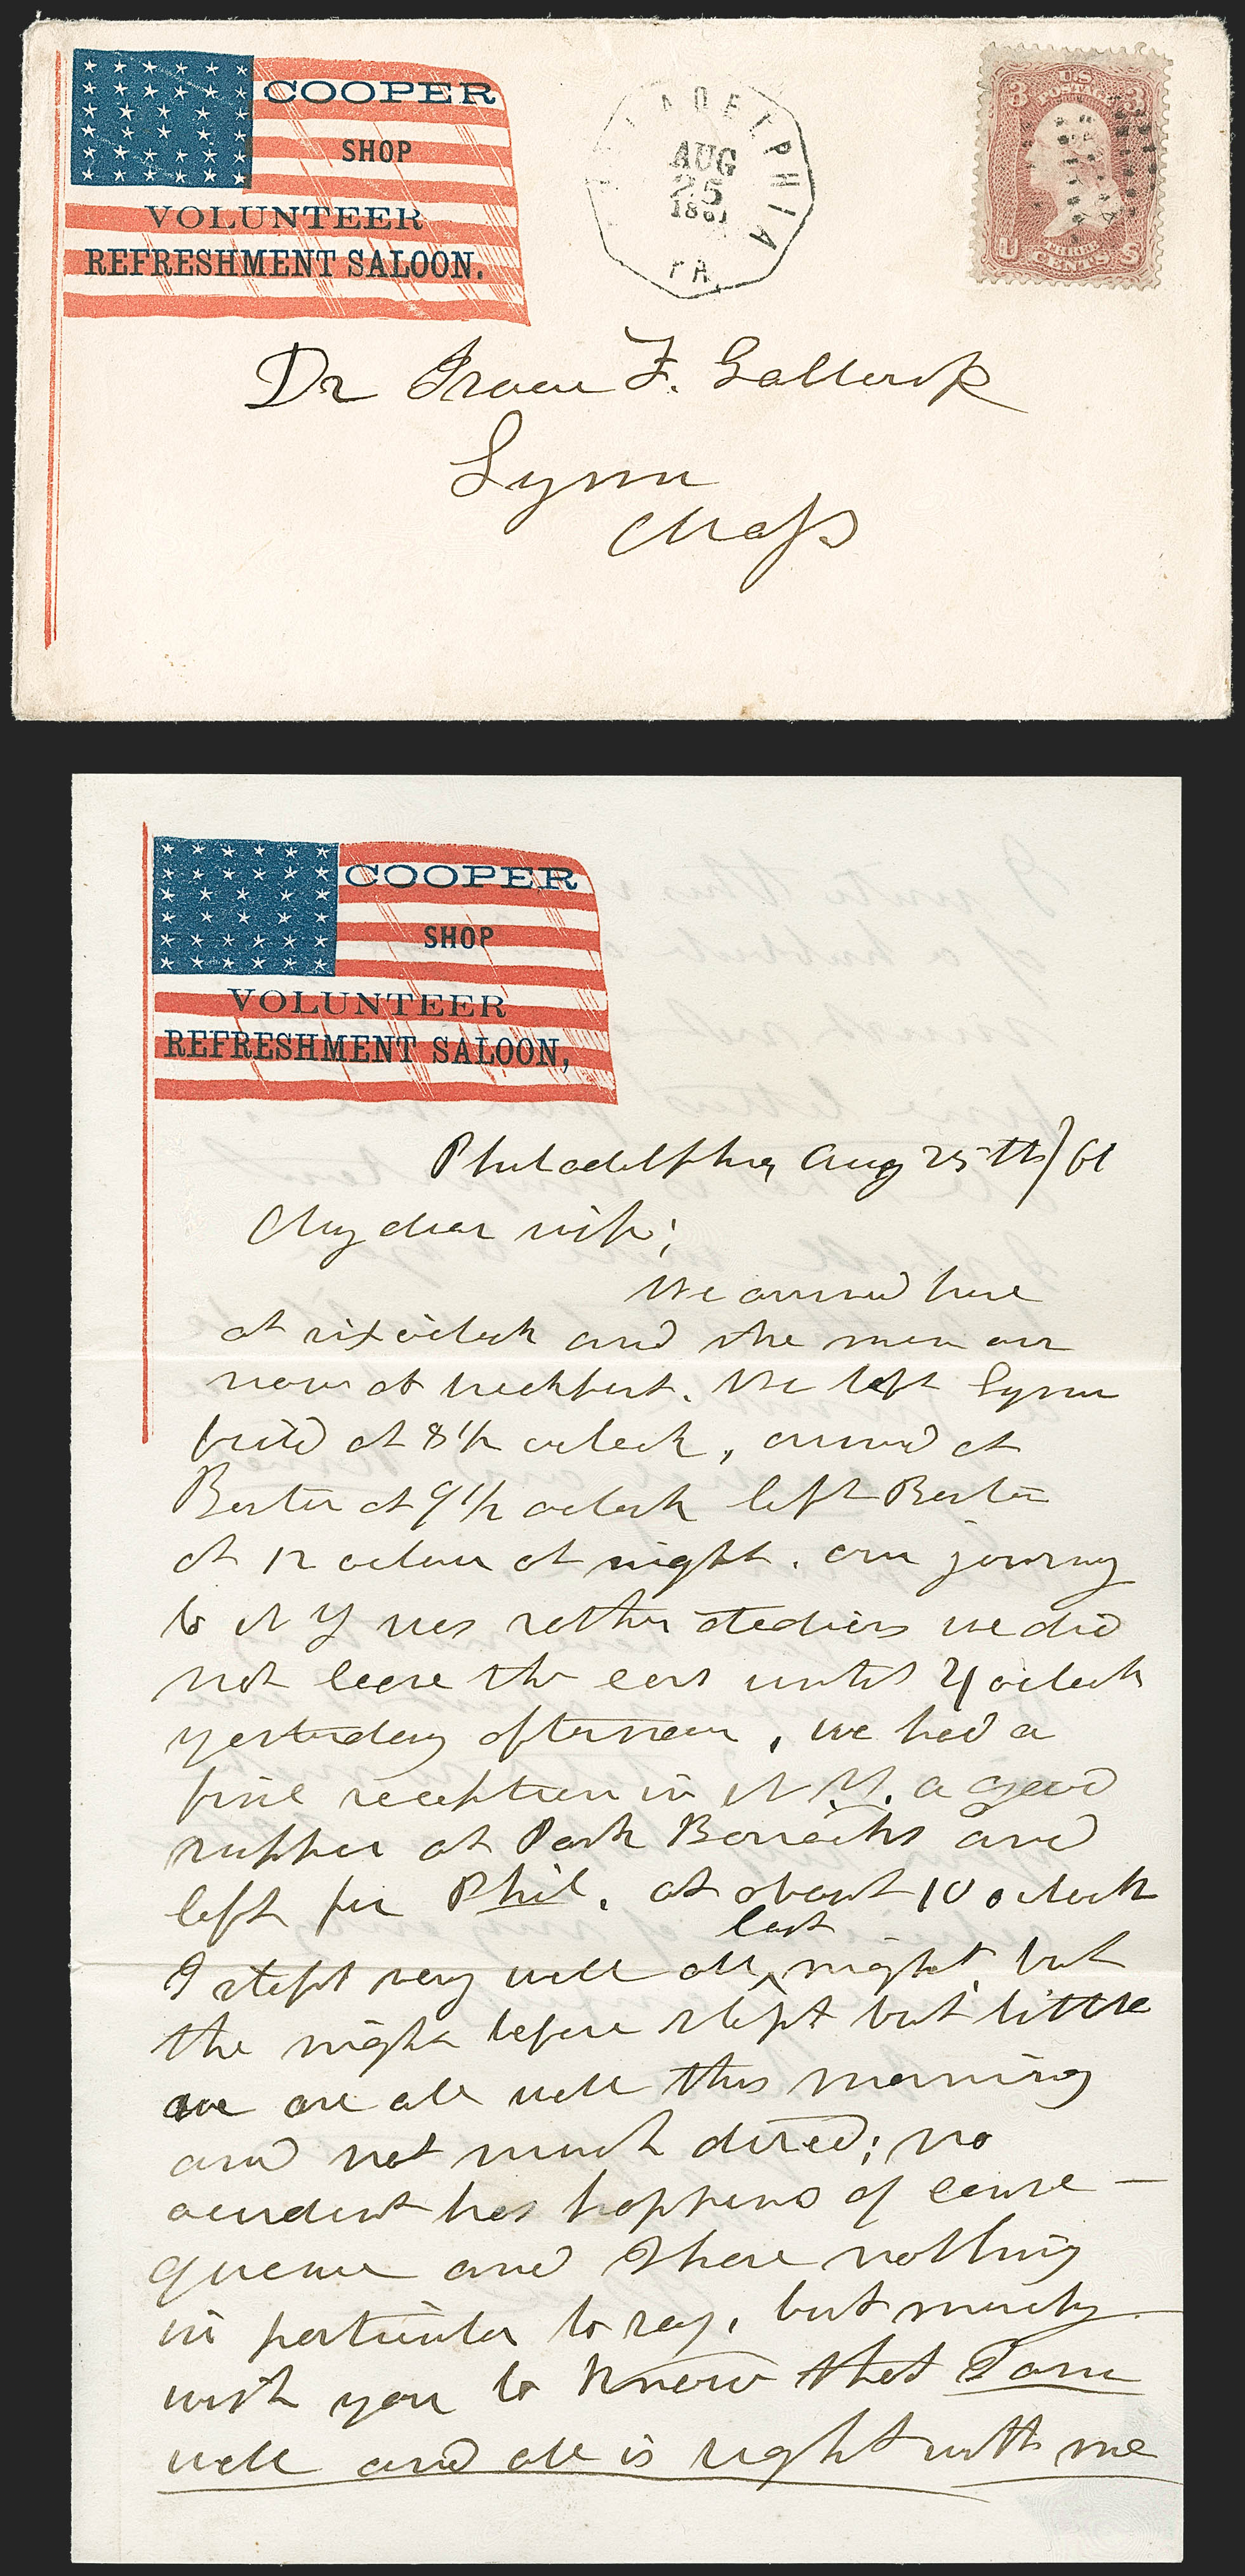 COOPER
SHOP
VOLUNTEER
REFRESHMENT SALOON.
PHILADELPHIA
AUG
25
1861
PA.
3 US 3
POSTAGE
U THREE S
CENTS
Dr F. Galloup
Lynn
Mass
COOPER
SHOP
VOLUNTEER
REFRESHMENT SALOON,
Philadelphia Aug 25th/61
My dear wife;
We arrived here
at six oclock and the men are
now at breckfast. We left Lynn
at 8 1/2 oclock, arrived at
Boston at 9 1/2 oclock left Boston
at 12 oclock at night. our journey
to N Y was rather tedious we did
not leave the cars until 4 oclock
yesterday afternoon, we had a
fine reception in N.Y. a good
supper at Park Barracks and
left for Phil. at about 10 oclock
I slept very well all last night but
the night before slept but little
we are all well this morning
and not much tired; no
accident has happend of conse-
quence and I have nothing
in particular to say, but merely
wish you to know that I am
well and all is right with me